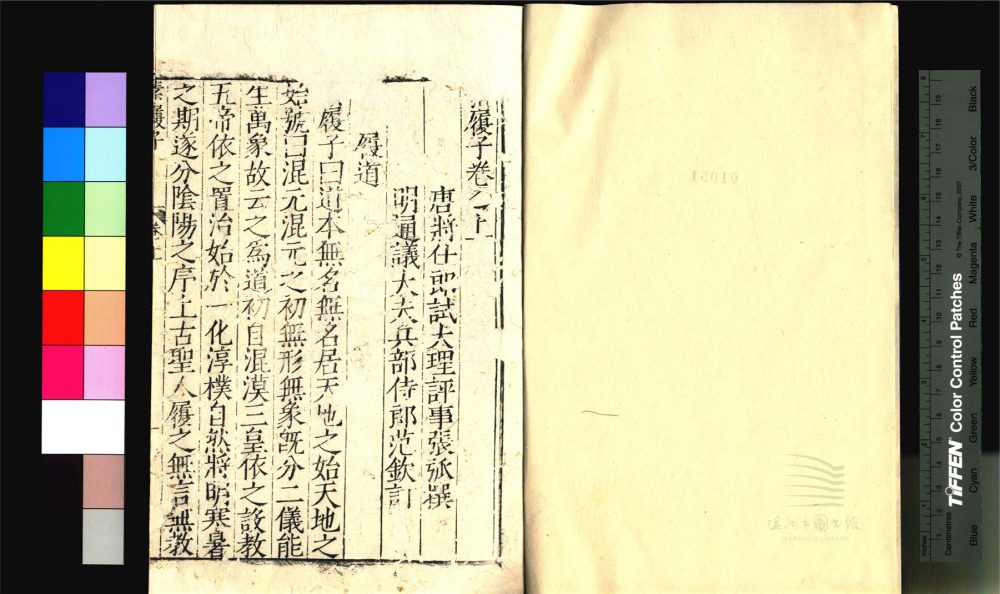 履子卷上
唐將仕郎試大理評事張弧撰
明通議大夫兵部侍郎范欽訂
履道
履子曰道本無名無名居天地之始天地之
始號曰混元混元之初無形無象旣分二儀能
生萬象故云之為道初自混漠三皇依之設教
五帝依之置治始於一化淳樸自然將明寒暑
之期逐分陰陽之序上古聖人履之無言無教
素履子
卷上
01051
溫州市圖書館
WENZHOU LIBRARY
Inches
Centimetres
TIFFEN Color Control Patches
© The Tiffen Company, 2007
Blue
Cyan
Green
Yellow
Red
Magenta
White
3/Color
Black